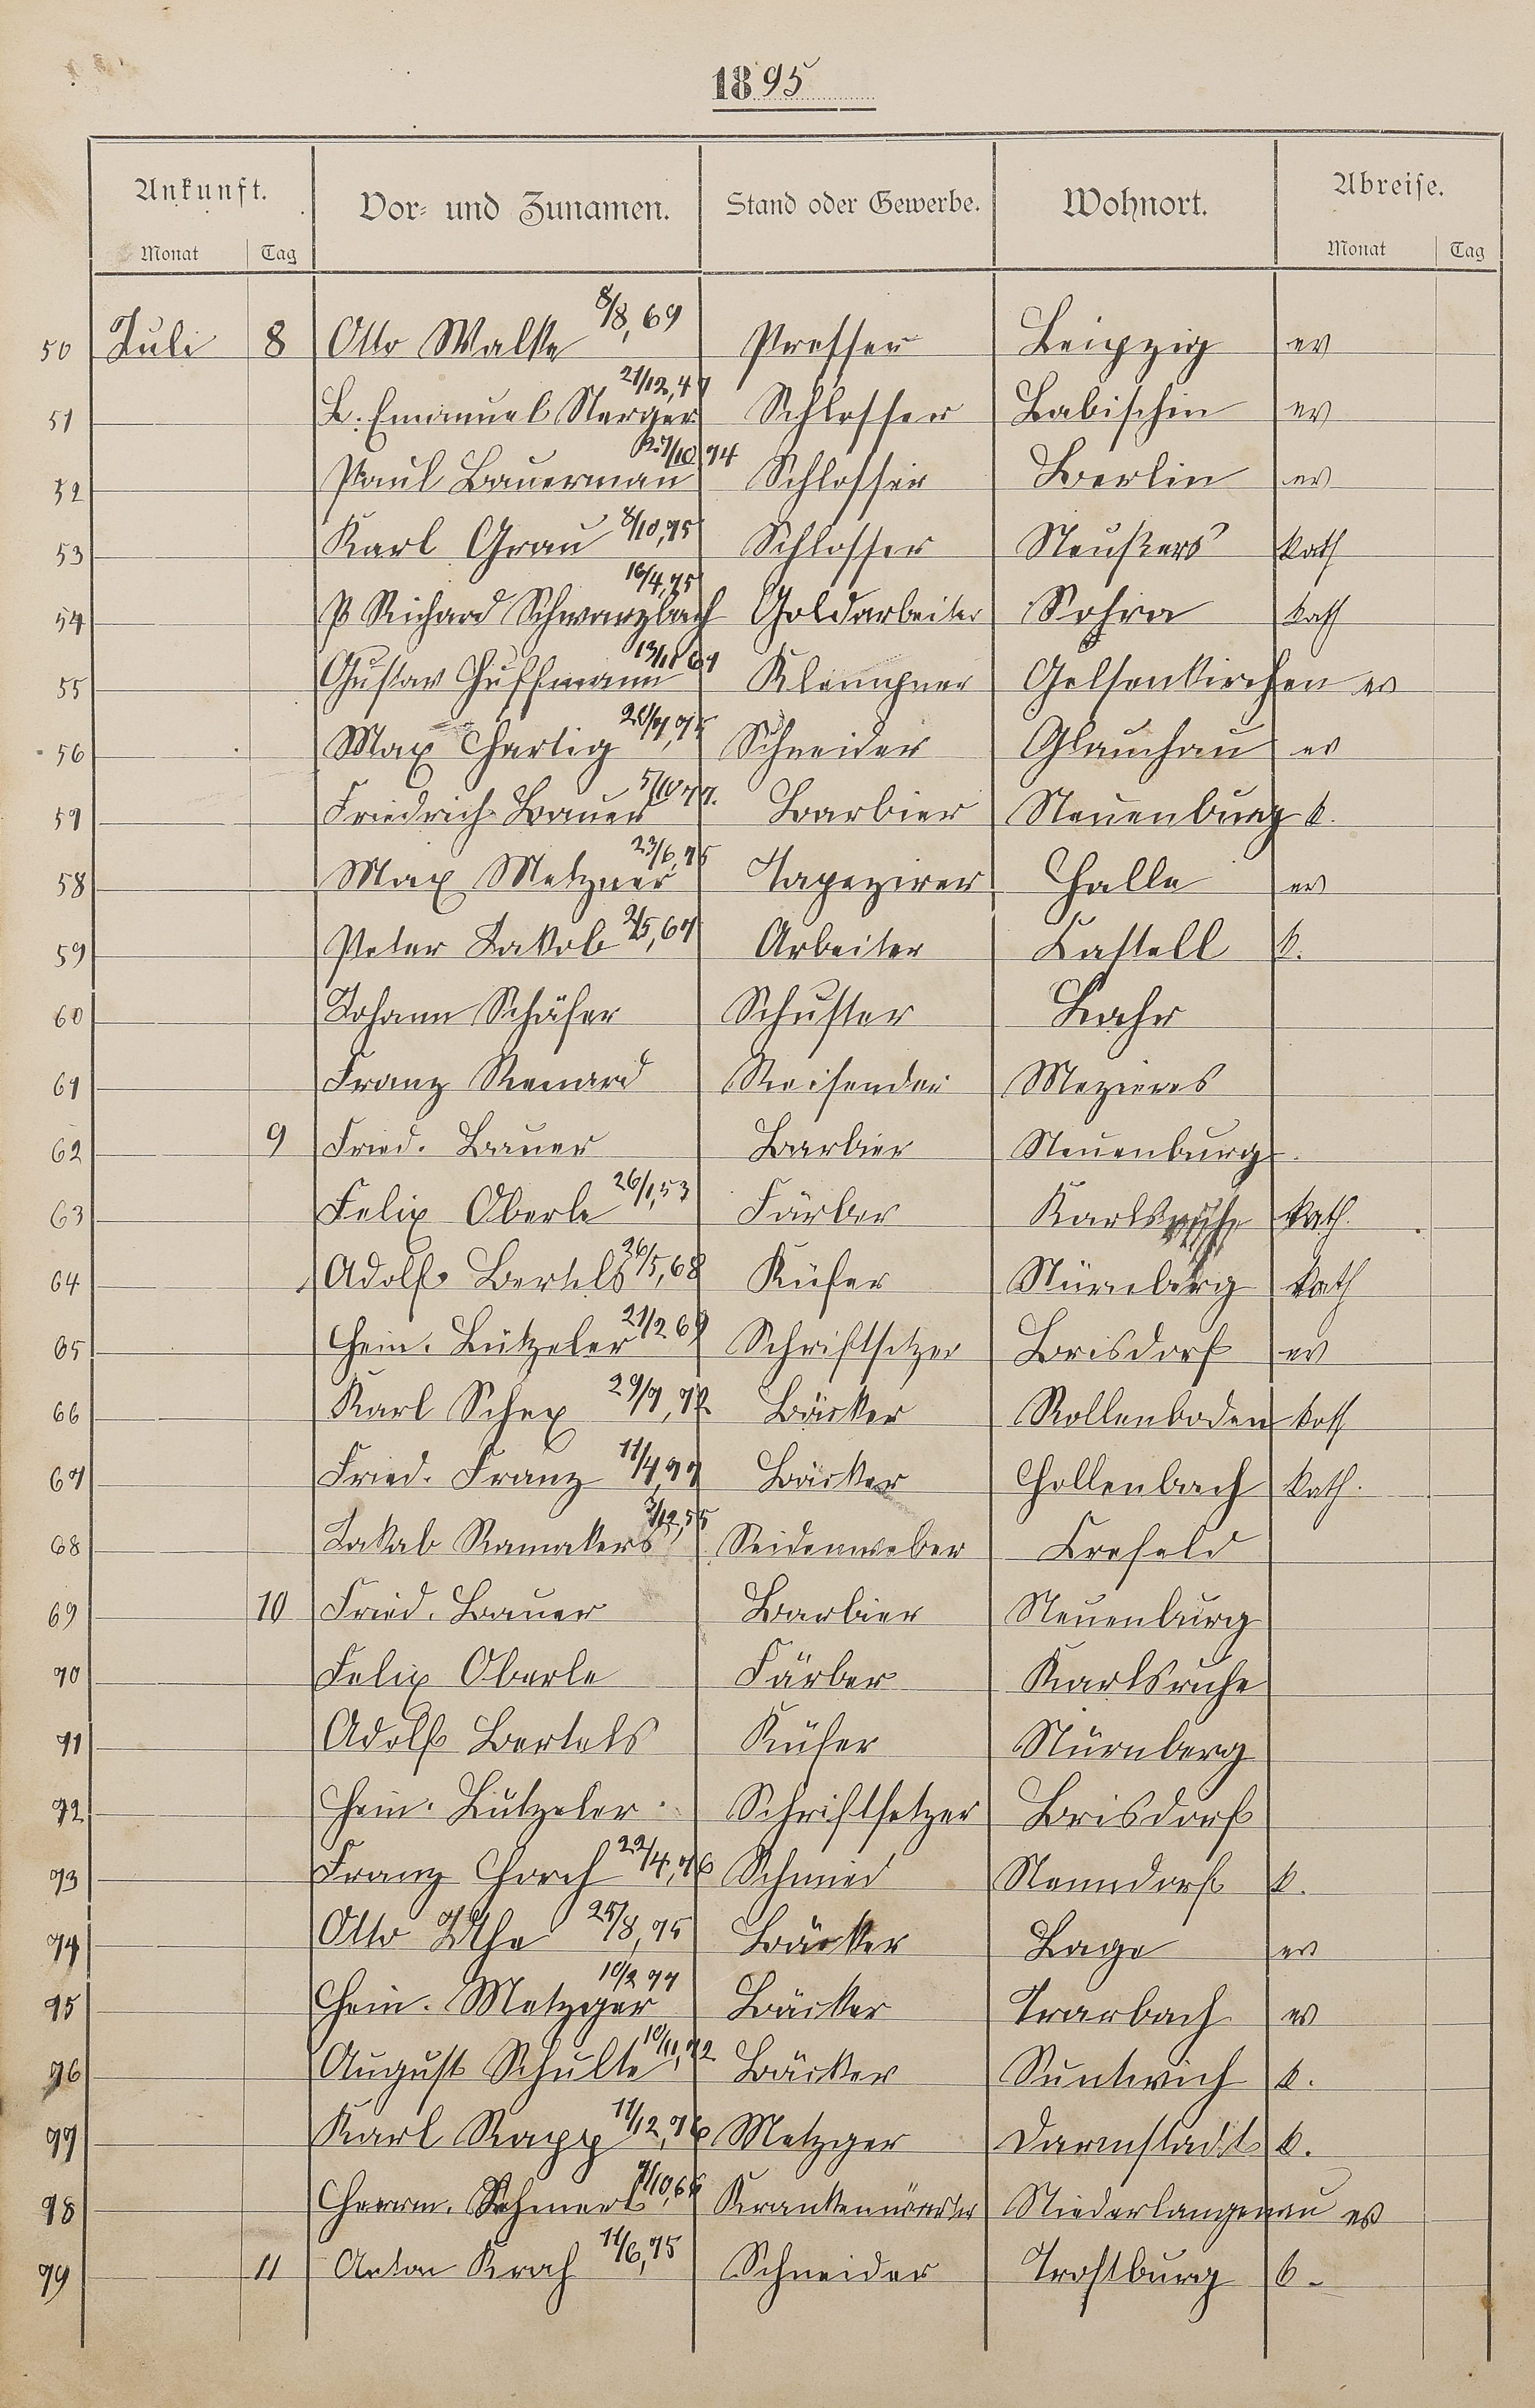 1895
Ankunft. Vor- und Zunamen. Stand oder Gewerbe. Wohnort. Abreise.
Monat Tag Monat Tag
50 Juli 8 Otto Walke 8/8, 69 Presser Leipzig ev
51 L. Emanuel Nerger 21/12, 47 Schlosser Labischin ev
52 Paul Bauerman 10 74 Schlosser Berlin ev
53 Karl Grau 8/10, 75 Schlosser kath
54 P Richard Schwarzbach 16/4, 75 Goldarbeiter Sohra kath
55 Gustav Huffmann 13/11 67 Klempner Gelsenkirchen ev
56 Max Hartig 75 Schneider Glauchau ev
57 Friedrich Bauer 5/10 77. Barbier Neuenburg k.
58 Max Metzner 23/6, 75 Tapezirer Halle ev
59 Peter Jakob 2/5, 67 Arbeiter Kastell k.
60 Johann Schäfer Schuster Lahr
61 Franz Renard Reisender Mezieres
62 9 Fried. Bauer Barbier Neuenburg.
63 Felix Oberle 26/1, 53 Färber Karlsruhe kath.
64 Adolf Bertels 26/5, 68 Küfer Nürnberg kath
65 Hein. Lützeler 21/2 69 Schriftsetzer Brisdorf ev
66 Karl Schex 29/7, 72 Bäcker Rollenboden kath
67 Fried. Franz 11/4, 77 Bäcker Hollenbach kath.
68 Jakob Ramakers 3/12, 55 Seidenweber Crefeld
69 10 Fried. Bauer Barbier Neuenburg
70 Felix Oberle Färber Karlsruhe
71 Adolf Bertels Küfer Nürnberg
72 Hein. Lützeler. Schriftsetzer Brisdorf
73 Franz Horch 22/4, 76 Schmied Nenndorf k.
74 Otto Uhe 25/8, 75 Bäcker Lage ev
75 Hein. Metzger 10/2 77 Bäcker Trarbach ev
76 August Schulte 10/11, 72 Bäcker Suntwich k.
77 Karl Rapp 11/12, 76 Metzger Darmstadt k.
78 Herrm. Schmerl Krankenwärter Niederlangenau ev
79 11 Anton Krah 11/6, 75 Schneider Trostburg k.